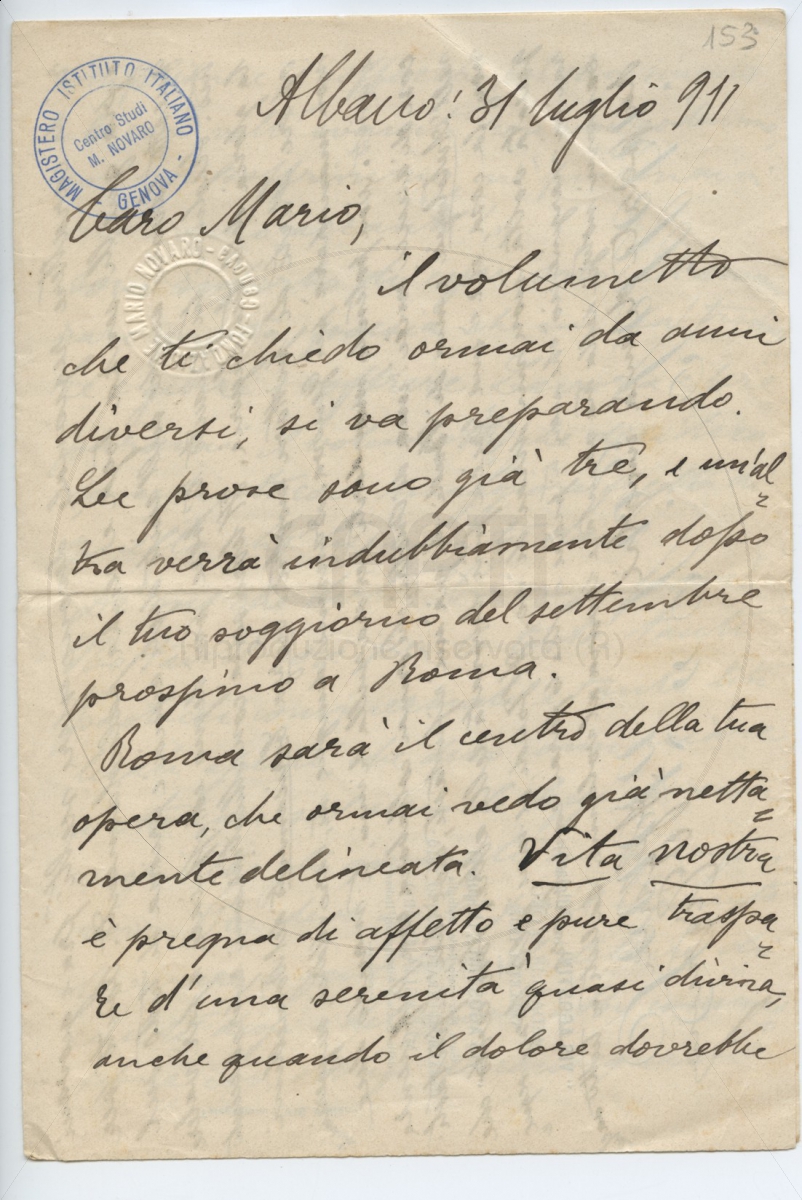 153
MAGISTERO ISTITUTO ITALIANO - GENOVA -
Centro Studi
M. NOVARO
Albano! 31 luglio 911
Caro Mario,
il volumetto
che ti chiedo ormai da anni
diversi, si va preparando.
Le prose sono già tre, e un'al=
tra verrà indubbiamente dopo
il tuo soggiorno del settembre
prossimo a Roma.
Roma sarà il centro della tua
opera, che ormai vedo già netta=
mente delineata. Vita nostra
è pregna di affetto e pure traspa=
re d'una serenità quasi divina,
anche quando il dolore dovrebbe
riproduzione riservata (R)